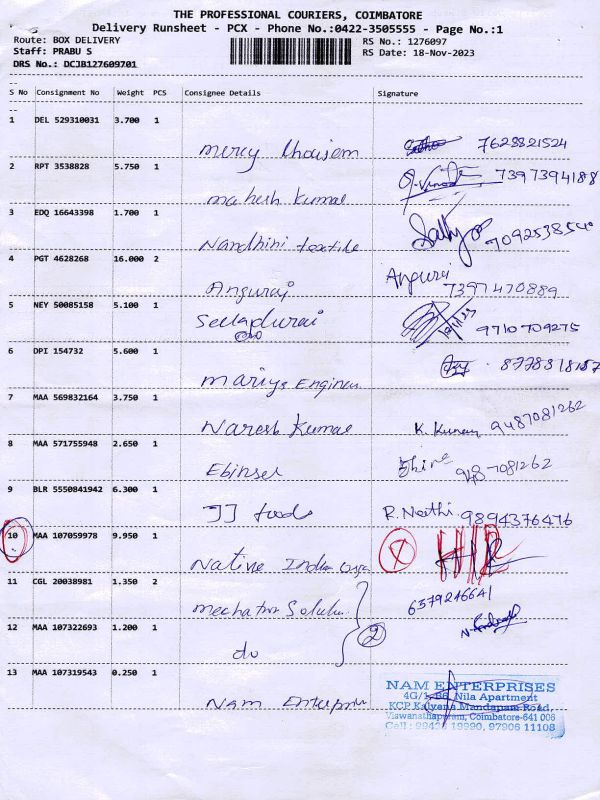 THE PROFESSIONAL COURIERS, COIMBATORE
Delivery Runsheet - PCX - Phone No.:0422-3505555 - Page No.:1
Route: BOX DELIVERY
RS No.: 1276097
Staff: PRABU S
RS Date: 18-Nov-2023
DRS No.: DCJB127609701
S No Consignment No Weight PCS Consignee Details Signature
1 DEL 529310031 3.700 1
mercy 7628821524
2 RPT 3538828 5.750 1
mahesh kumar 7397394188
3 EDQ 16643398 1.700 1
Nandhini textile
4 PGT 4628268 16.000 2
Anguraj 7397470889
5 NEY 50085158 5.100 1
Selladurai 9710709275
6 DPI 154732 5.600 1
mariya
7 MAA 569832164 3.750 1
Naresh Kumar 9487081262
8 MAA 571755948 2.650 1
7081262
9 BLR 5550841942 6.300 1
JJ foods 9894376476
10 MAA 107059978 9.950 1
Native
11 CGL 20038981 1.350 2
6379246641
12 MAA 107322693 1.200 1
do 2
13 MAA 107319543 0.250 1
Nam
NAM ENTERPRISES
Nila Apartment
KCP Kalyana Mandapam Road,
Viswanathapuram, Coimbatore-641 006
19990, 97906 11108